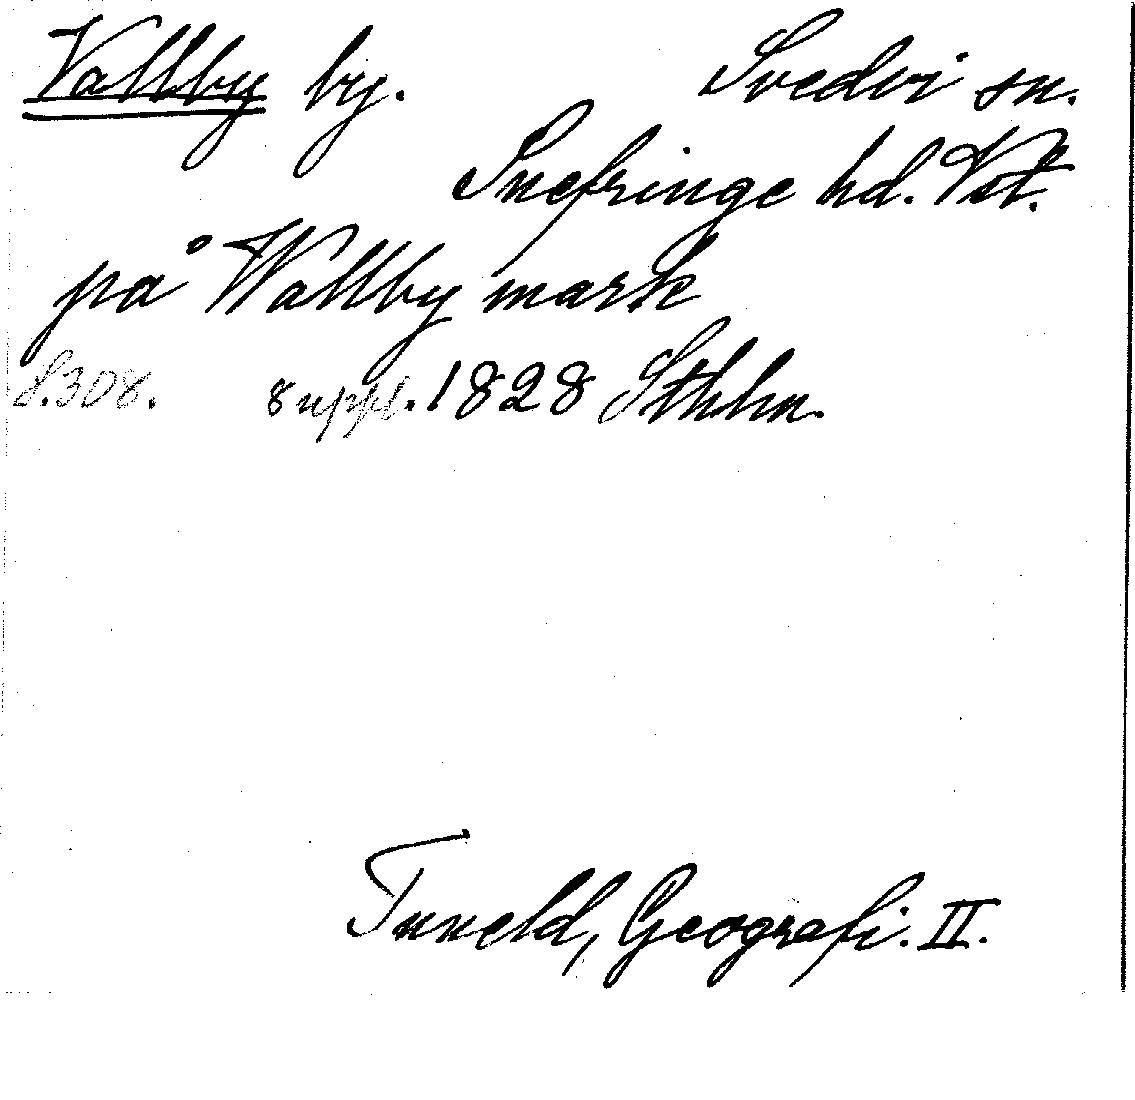 Vallby by. Svedvi sn.
Snefringe hd. Vst.
på Wallby mark
S. 308. 8 uppl. 1828 Sthlm.
Tuneld, Geografi. II.